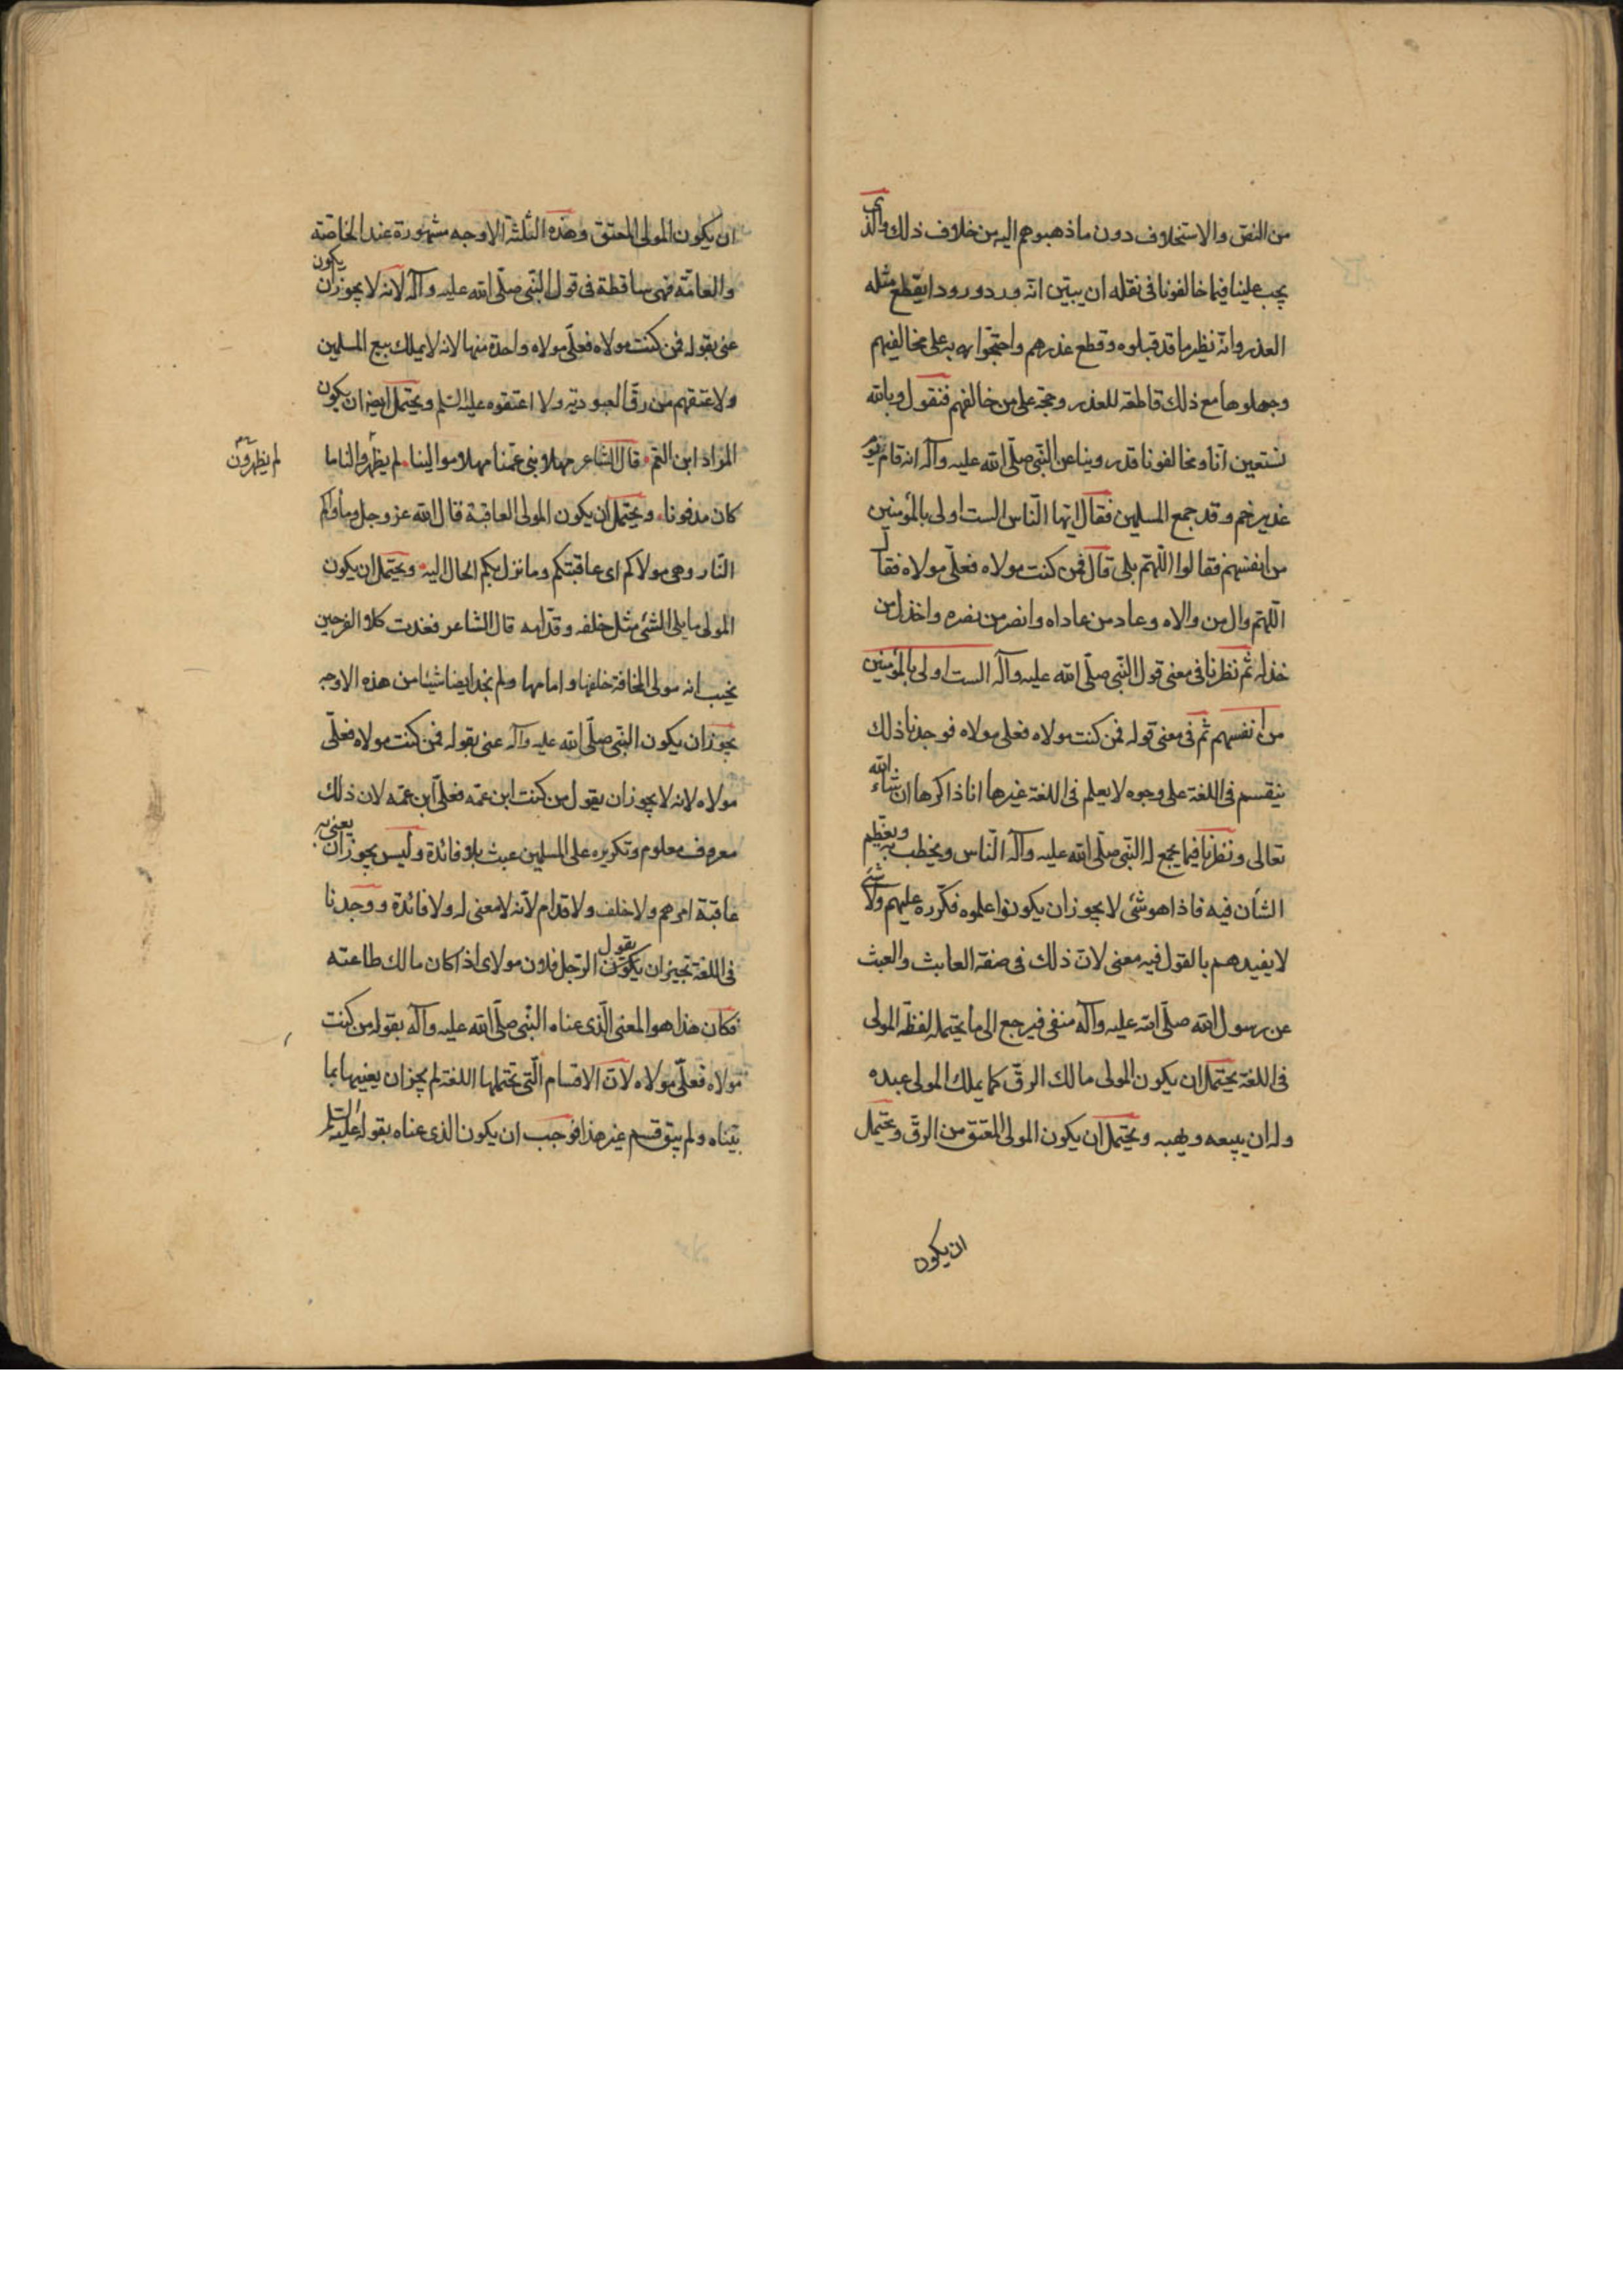 من النص والاستخلاف دون ما ذهبوا هم اليه من خلاف ذلك والذى
يجب علينا فيما خالفونا فى نقله ان نبيّن انّه ورد ورودا يقطع مثله
العذر وانّه نظير ما قد قبلوه وقطع عذرهم واحتجّوا به على مخالفيهم
وجعلوها مع ذلك قاطعة للعذر وحجة على من خالفهم فنقول وبالله
نستعين انّا ومخالفونا قد روينا عن النّبى صلّى الله عليه وآله انه قام يوم
غدير خم وقد جمع المسلمين فقال ايّها النّاس الست اولى بالمؤمنين
من انفسهم فقالوا اللّهمّ بلى قال فمن كنت مولاه فعلّى مولاه فقال
اللّهمّ وال من والاه وعاد من عاداه وانصر من نصره واخذل من
خذله ثم نظرنا فى معنى قول النّبى صلّى الله عليه وآله الست اولى بالمؤمنين
من انفسهم ثم فى معنى قوله فمن كنت مولاه فعلى مولاه فوجدنا ذلك
ينقسم فى اللغة على وجوه لا يعلم فى اللغة غيرها انا ذاكرها ان شاء الله
تعالى ونظرنا فيما يجمع له النّبى صلّى الله عليه وآله النّاس ويخطب به ويعظم
الشأن فيه فاذا هو شئ لا يجوز ان يكونوا علموه فكرّره عليهم ولا شئ
لا يفيدهم بالقول فيه معنى لانّ ذلك فى صفة العابث والعبث
عن رسول الله صلّى الله عليه وآله منفى فيرجع الى ما يحتمله لفظة المولى
فى اللغة يحتمل ان يكون المولى مالك الرقّ كما يملك المولى عبده
وله ان يبيعه ويهبه ويحتمل ان يكون المولى المعتق من الرقّ ويحتمل
ان يكون
ان يكون المولى المعتق وهذه الثلثة الاوجه مشهورة عند الخاصّة
والعامّة فهى ساقطة فى قول النّبى صلّى الله عليه وآله لانه لا يجوز ان يكون
عنى بقوله فمن كنت مولاه فعلّى مولاه واحدة منها لانه لا يملك بيع المسلمين
ولا عتقهم من رقّ العبوديّة ولا اعتقوه عليه السّلم ويحتمل ايضا ان يكون
المراد ابن العم قال الشاعر مهلا بنى عمّنا مهلا موالينا لم يظهروا لنا ما
لم يظهرون
كان مدفونا ويحتمل ان يكون المولى العاقبة قال الله عز وجل ومأواكم
النّار وهى مولاكم اى عاقبتكم وما نزل بكم الحال اليه ويحتمل ان يكون
المولى ما يلى الشئ مثل خلفه وقدّامه قال الشاعر فغدت كلا الفرجين
تحب انه مولى المخافة خلفها وامامها ولم نجد ايضا شيئا من هذه الاوجه
يجوز ان يكون النّبى صلّى الله عليه وآله عنى بقوله فمن كنت مولاه فعلّى
مولاه لانه لا يجوز ان يقول من كنت ابن عمّه فعلى ابن عمّه لان ذلك
معروف معلوم وتكريره على المسلمين عبث بلا فائدة وليس يجوز ان يعنى به
عاقبة امرهم ولا خلف ولا قدام لانّه لا معنى له ولا فائدة ووجدنا
فى اللغة تجيز ان يكون يقول الرّجل فلان مولاى اذا كان مالك طاعته
فكان هذا هو المعنى الّذى عناه النّبى صلّى الله عليه وآله بقوله من كنت
مولاه فعلّى مولاه لانّ الاقسام الّتى تحتملها اللغة لم يجز ان يعنيها بما
بيّناه ولم يبق قسم غير هذا فوجب ان يكون الذى عناه بقوله عليه السّلم